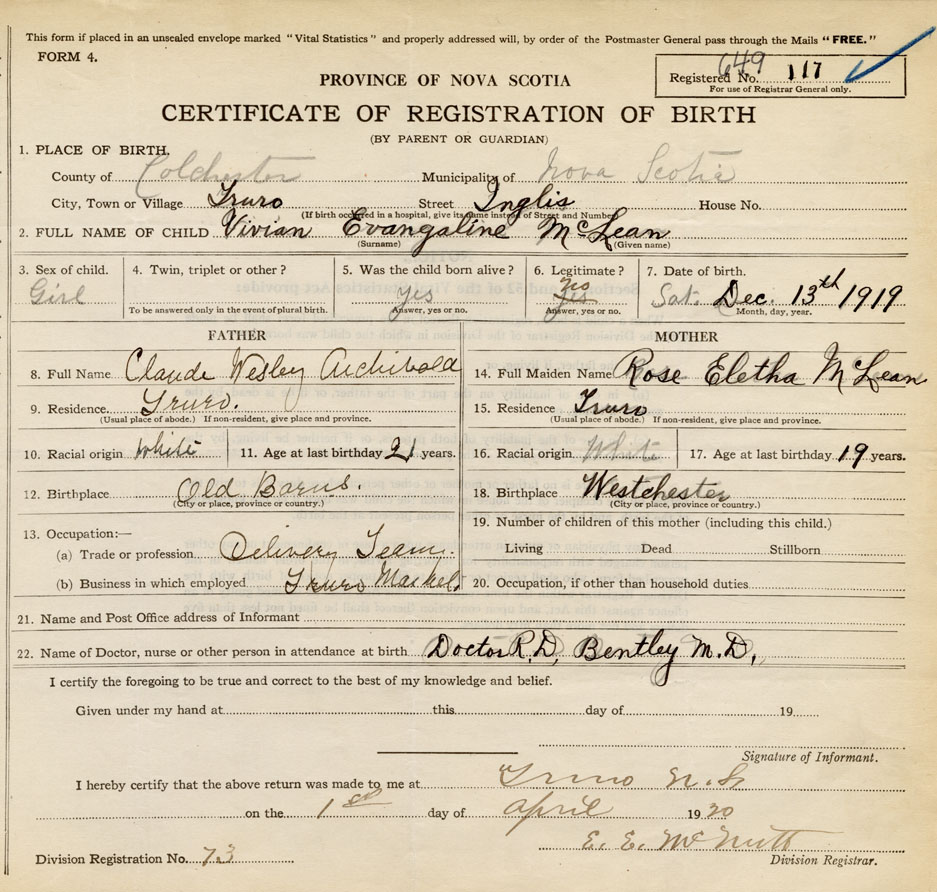 This form if placed in an unsealed envelope marked "Vital Statistics" and properly addressed will, by order of the Postmaster General pass through the Mails "FREE."
FORM 4.
649
Registered No. 117
For use of Registrar General only.
PROVINCE OF NOVA SCOTIA
CERTIFICATE OF REGISTRATION OF BIRTH
(BY PARENT OR GUARDIAN)
1. PLACE OF BIRTH.
County of Colchester Municipality of Nova Scotia
City, Town or Village Truro Street Inglis House No.
(If birth occurred in a hospital, give its name instead of Street and Number)
2. FULL NAME OF CHILD Vivian Evangaline McLean
(Surname) (Given name)
3. Sex of child. 4. Twin, triplet or other? 5. Was the child born alive? 6. Legitimate? 7. Date of birth.
Girl yes yes Sat. Dec. 13th 1919
To be answered only in the event of plural birth. Answer, yes or no. Answer, yes or no. Month, day, year.
FATHER MOTHER
8. Full Name Claude Wesley Archibald 14. Full Maiden Name Rose Eletha McLean
9. Residence Truro. 15. Residence Truro
(Usual place of abode.) If non-resident, give place and province. (Usual place of abode.) If non-resident, give place and province.
10. Racial origin White 11. Age at last birthday 21 years. 16. Racial origin White 17. Age at last birthday 19 years.
12. Birthplace Old Barns. 18. Birthplace Westchester
(City or place, province or country.) (City or place, province or country.)
13. Occupation:— 19. Number of children of this mother (including this child.)
(a) Trade or profession Delivery Team. Living Dead Stillborn
(b) Business in which employed Truro Market. 20. Occupation, if other than household duties
21. Name and Post Office address of Informant
22. Name of Doctor, nurse or other person in attendance at birth Doctor R.D. Bentley M.D.
I certify the foregoing to be true and correct to the best of my knowledge and belief.
Given under my hand at this day of 19
Signature of Informant.
I hereby certify that the above return was made to me at Truro N.S.
on the 1st day of April 1920
E. E. McNutt
Division Registration No. 73 Division Registrar.